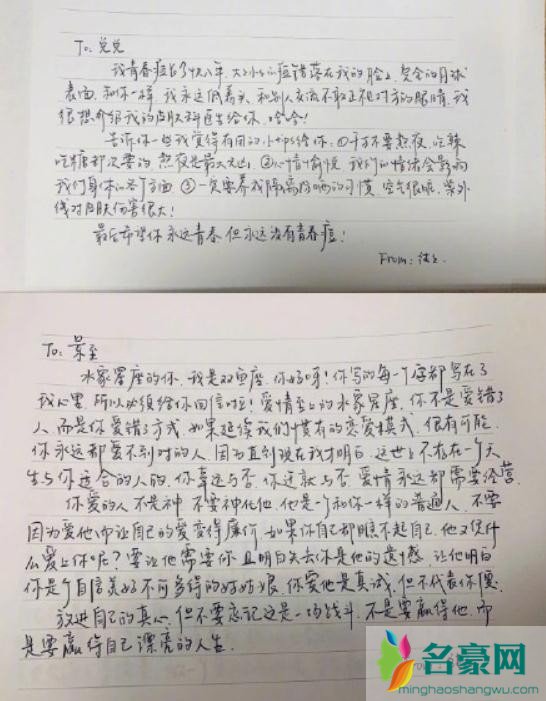 To: 兑兑
我青春痘长了快八年,大大小小的痘错落在我的脸上,复合的月球
表面,和你一样,我永远低着头,和别人交流不敢正视对方的眼睛,我
很想介绍我的皮肤科医生给你,哈哈!
告诉你一些我觉得有用的小tips给你:①千万不要熬夜,吃辣
吃糖都次要的,熬夜是最大元凶 ②心情愉悦,我们的情绪会影响
我们身体的各个方面 ③一定要养成隔离防晒的习惯,空气很脏,紫外
线对皮肤伤害很大!
最后希望你永远青春,但永远没有青春痘!
From:
To: 景至
水象星座的你,我是双鱼座,你好呀!你写的每一个字都写在了
我心里,所以必须给你回信啦!爱情至上的水象星座,你不是爱错了
人,而是你爱错了方式,如果延续我们惯有的恋爱模式,很有可能,
你永远都爱不到对的人,因为直到现在我才明白,这世上不存在一个天
生与你适合的人的,你幸运与否,你迁就与否,爱情永远都需要经营.
你爱的人不是神,不要神化他,他是个和你一样的普通人,不要
因为爱他而让自己的爱变得廉价,如果你自己都瞧不起自己,他又凭什
么爱上你呢?要让他需要你且明白失去你是他的遗憾,让他明白
你是个自信美好不可多得的好姑娘,你爱他是真诚,但不代表你傻.
放进自己的真心,但不要忘记这是一场战斗,不是要赢得他,而
是要赢得自己漂亮的人生.
名豪网
minghaoshangwu.com